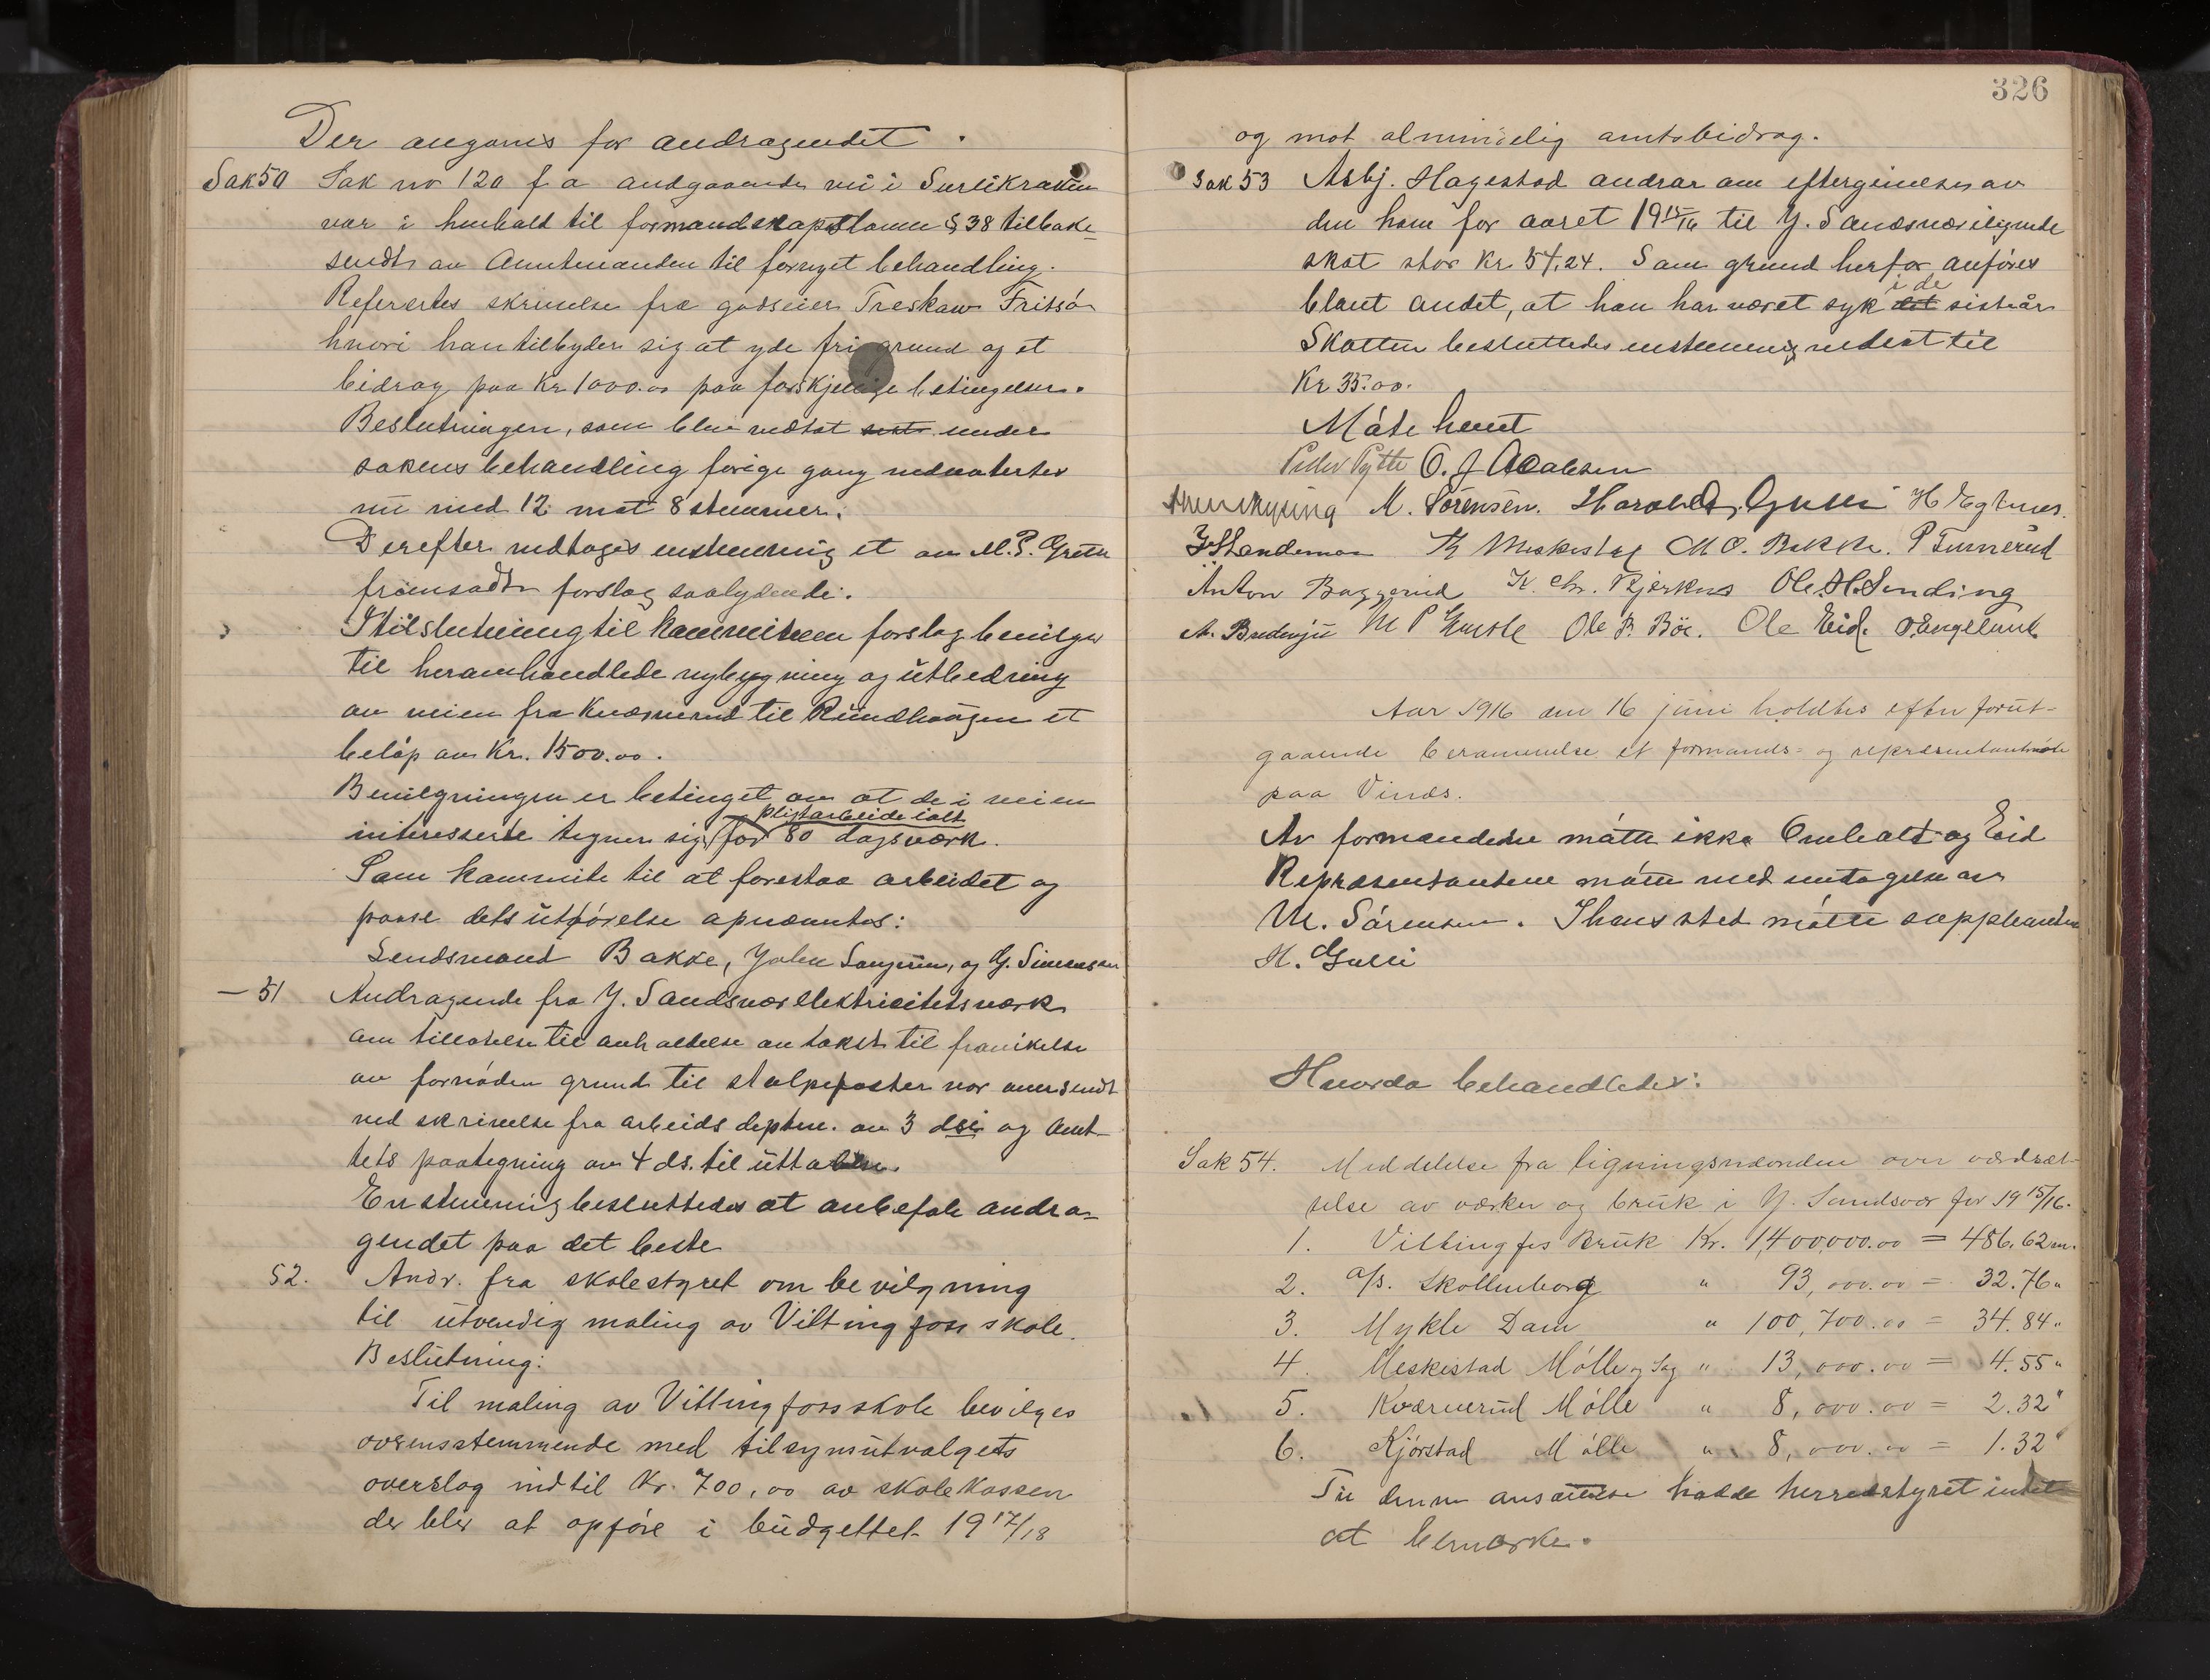 Der angaves for andragendet.
Sak 50 Sak no 120 f a angaaende vei i Surtikraken
var i henhold til formandskapsloven § 38 tilbake-
sendt av Amtmanden til fornyet behandling.
Refertes skrivelse fra godseier Treskow Fritsö
hvori han tilbyder sig at yde fri grund og et
bidrag paa Kr 1000.00 paa forskjellige betingelser.
Beslutningen, som blev vedtat under
sakens behandling forige gang
nu med 12 mot 8 stemmer.
Derefter vedtoges enstemmig et av M.P. Grette
fremsadt forslag saalydende:
I tilslutning til kommiteen forslag bevilges
til heromhandlede nybygning og utbedring
av veien fra Kværnerud til Rundhaugen et
beløp av Kr. 1500.00.
Bevilgningen er betinget av at de i veien
pligtarbeide ialt
interesserte tegner sig for 80 dagsværk.
Som kommite til at forestaa arbeidet og
paase dets utførelse opnævntes:
Lendsmand Bakke, John og G. Simensen
— 51 Andragende fra Y. Sandsvær elektricitetsværk
om tillatelse til avholdelse av takst til fravikelse
av fornöden grund til stolpefæster var oversendt
ved skrivelse fra arbeids deptem. av 3 ds. og Amt-
tets paategning av 4 ds. til uttalelse.
Enstemmig besluttedes at anbefale andra-
gendet paa det beste
52. Andr. fra skolestyret om bevilgning
til utvendig maling av Vittingfoss skole.
Beslutning:
Til maling av Vittingfoss skole bevilges
overensstemmende med tilsynsutvalgets
overslag indtil Kr. 700,00 av skolekassen
der blir at opföre i budgettet 1917/18
326
og mot almindelig amtsbidrag.
Sak 53 Asbj. Hagestad andrar om eftergivelse av
den ham for aaret 1915/16 til Y. Sandsvær ilignede
skat stor Kr. 54,24. Som grund herfor anföres
i de
blant andet, at han har været syk det siste år
Skatten besluttedes enstemmig nedsat til
Kr 35.00.
Möte hævet
Peder Pytte O. J Jacobsen
M. Sörensen. Harald Gulli H Egtvet.
J. Standeman K Meskestad M O. Bakke. P Turrerud
Anton Baggerud K. Chr. Bjerknes Ole H. Sending
A. Brudvju M P Grette Ole B. Böe. Ole Eid. O. Engelund
Aar 1916 den 16 juni holdtes efter forut-
gaaende berammelse et formands- og repræsentantmöte
paa Vinds.
Av formændene mötte ikke Omholt og Eid
Repræsentantene mötte med undtagelse av
M. Sörensen. I hans sted mötte suppleanten
H. Gulli
Hvorda behandledes:
Sak 54. Meddelelse fra ligningsnævnden over værdsæt-
telse av verker og bruk i Y. Sandsvær for 1915/16.
1. Vittingfos Bruk Kr. 1,400,000.00 = 486,62 m.
2. A/S. Skollenborg " 93,000.00 = 32.76 "
3. Mykle Dam " 100,700.00 = 34.84 "
4. Meskestad Mölle og Sag " 13,000.00 = 4.55 "
5. Kværnerud Mölle " 8,000.00 = 2.32 "
6. Kjörstad Mölle " 8,000.00 = 1.32 "
Til denne ansættelse hadde herredstyret intet
at bemerke.